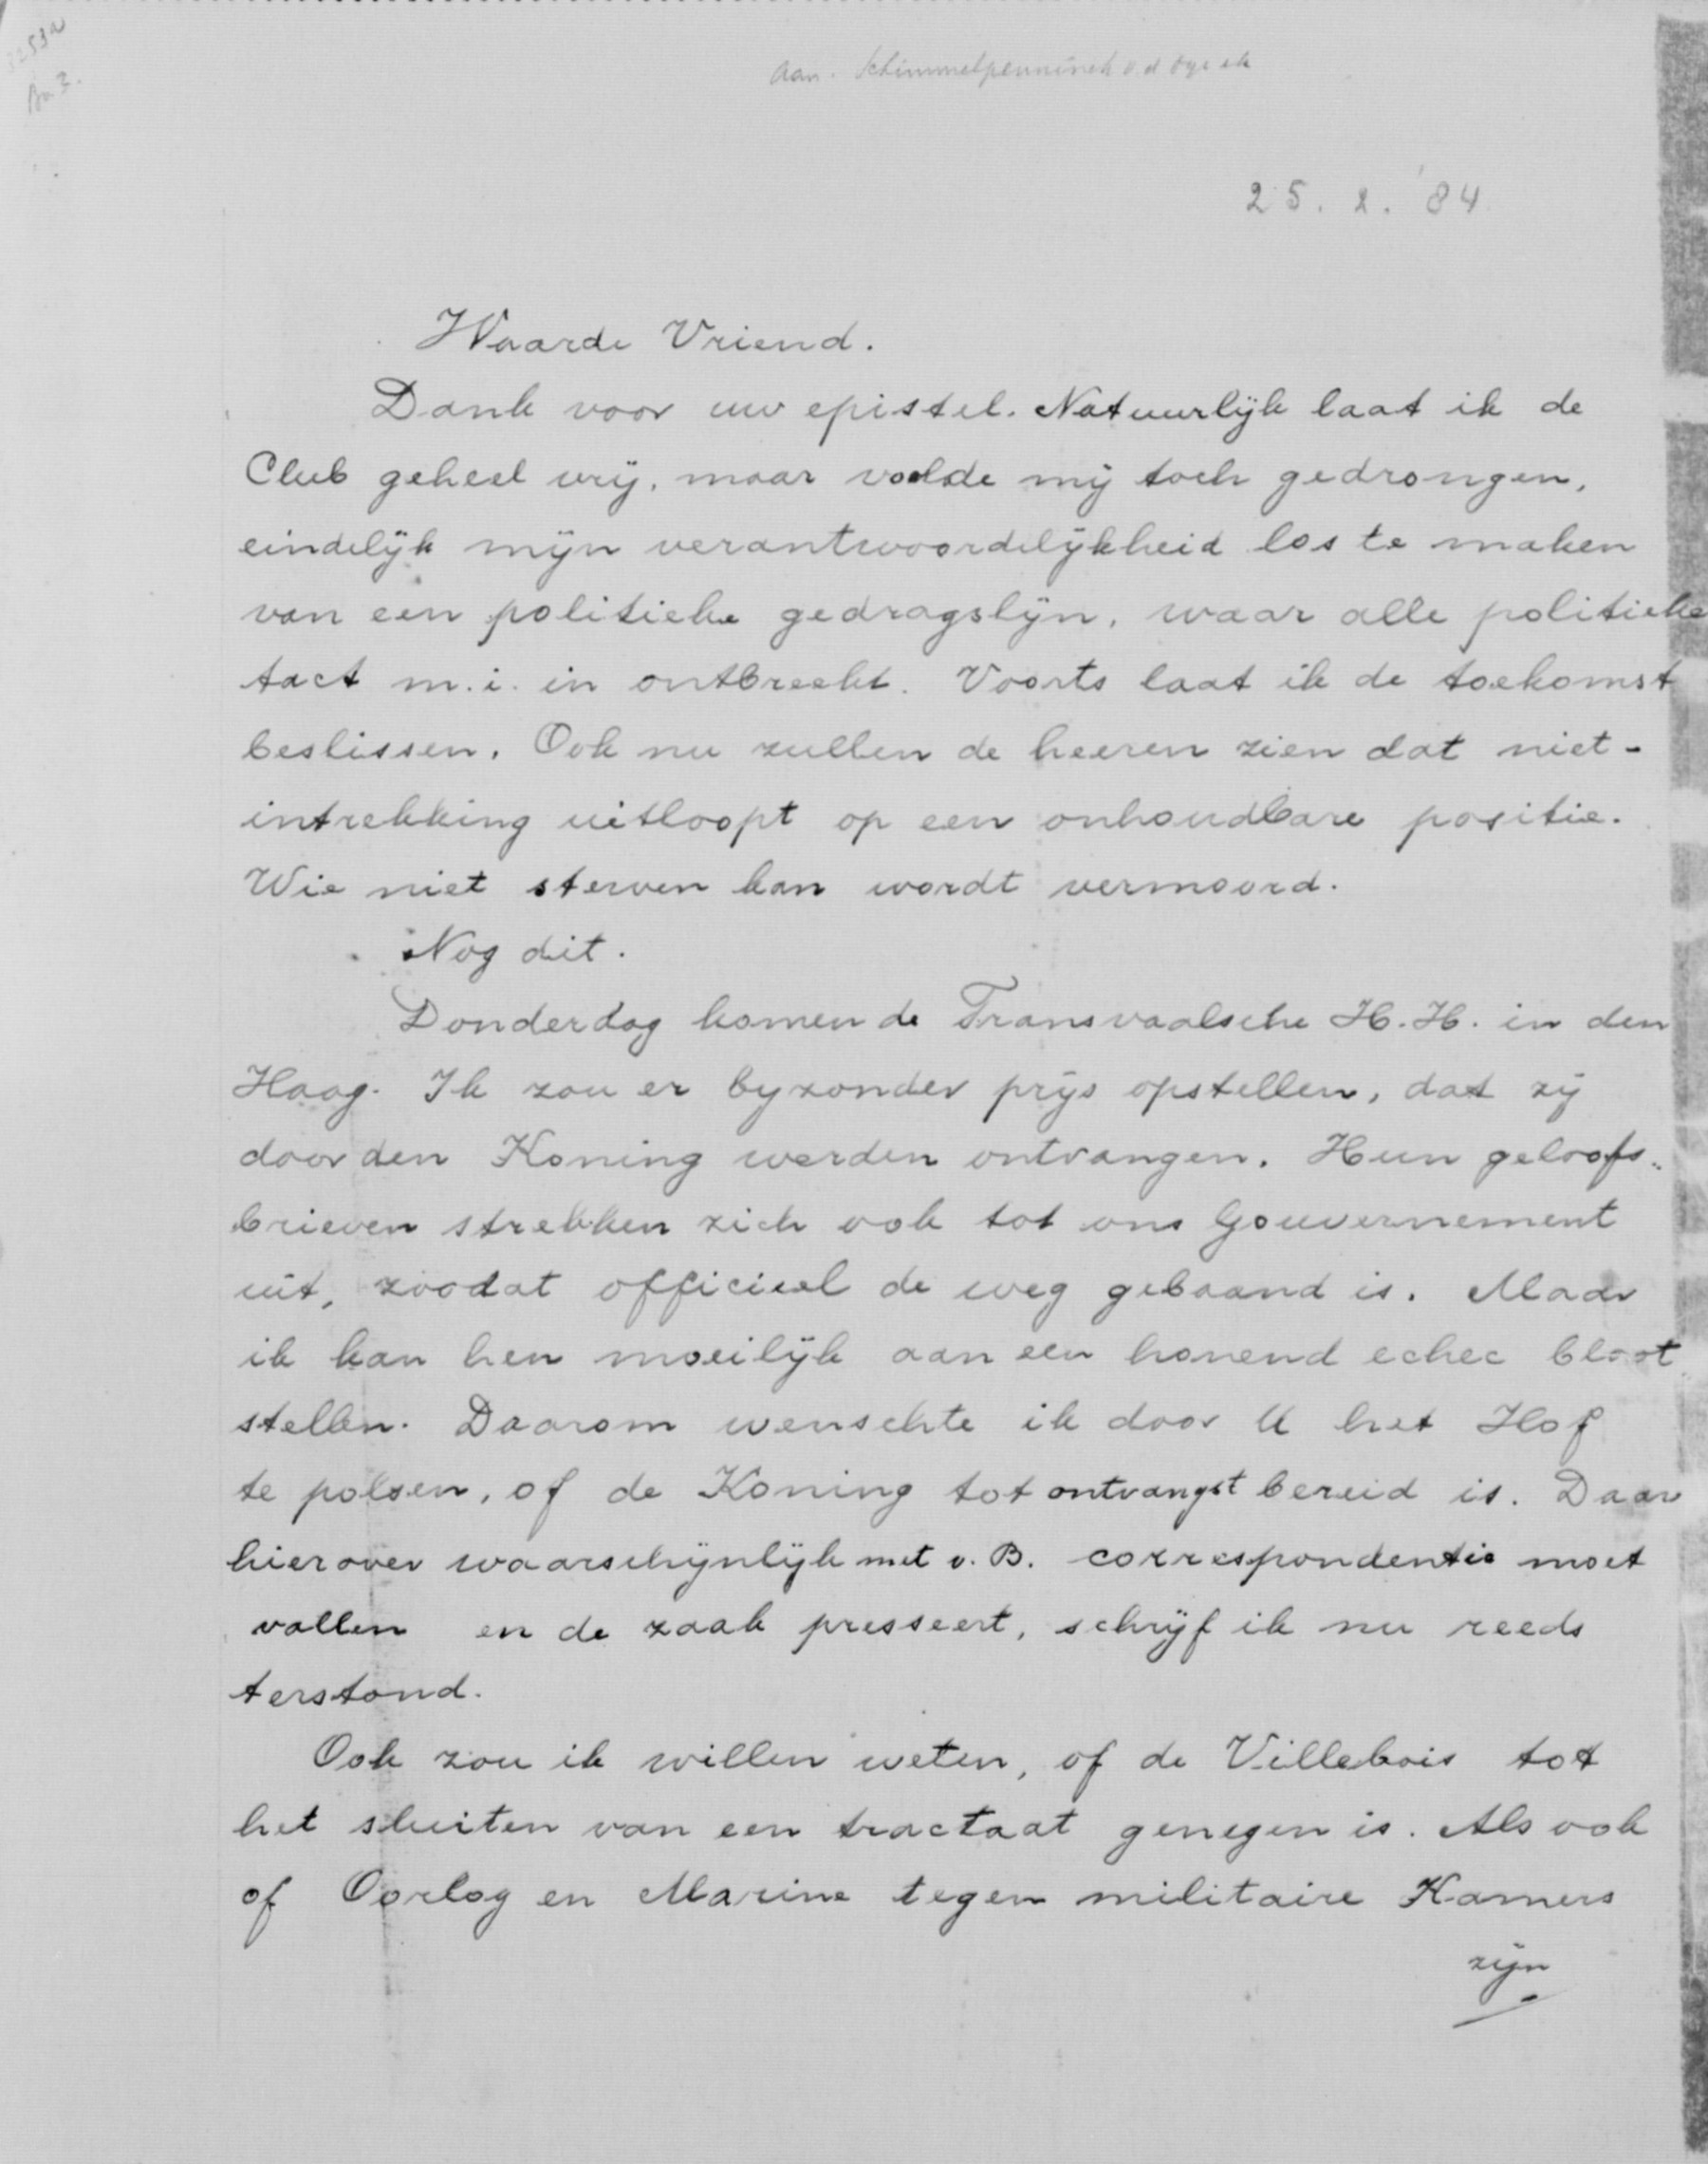 Aan. Schimmelpenninck v. d. Oye
25. 2. '84
Waarde Vriend.
Dank voor uw epistel. Natuurlijk laat ik de
Club geheel vrij, maar voelde mij toch gedrongen,
eindelijk mijn verantwoordelijkheid los te maken
van een politieke gedragslijn, waar alle politieke
tact m.i. in ontbreekt. Voorts laat ik de toekomst
beslissen. Ook nu zullen de heeren zien dat niet-
intrekking uitloopt op een onhoudbare positie.
Wie niet sterven kan wordt vermoord.
Nog dit.
Donderdag komen de Transvaalsche H.H. in den
Haag. Ik zou er byzonder prijs opstellen, dat zij
door den Koning werden ontvangen. Hun geloofs-
brieven strekken zich ook tot ons Gouvernement
uit, zoodat officieel de weg gebaand is. Maar
ik kan hen moeilijk aan een honend echec bloot
stellen. Daarom wenschte ik door U het Hof
te polsen, of de Koning tot ontvangst bereid is. Daar
hierover waarschijnlijk met v. B. correspondentie moet
vallen en de zaak presseert, schrijf ik nu reeds
terstond.
Ook zou ik willen weten, of de Villebois tot
het sluiten van een tractaat genegen is. Als ook
of Oorlog en Marine tegen militaire Kamers
zijn